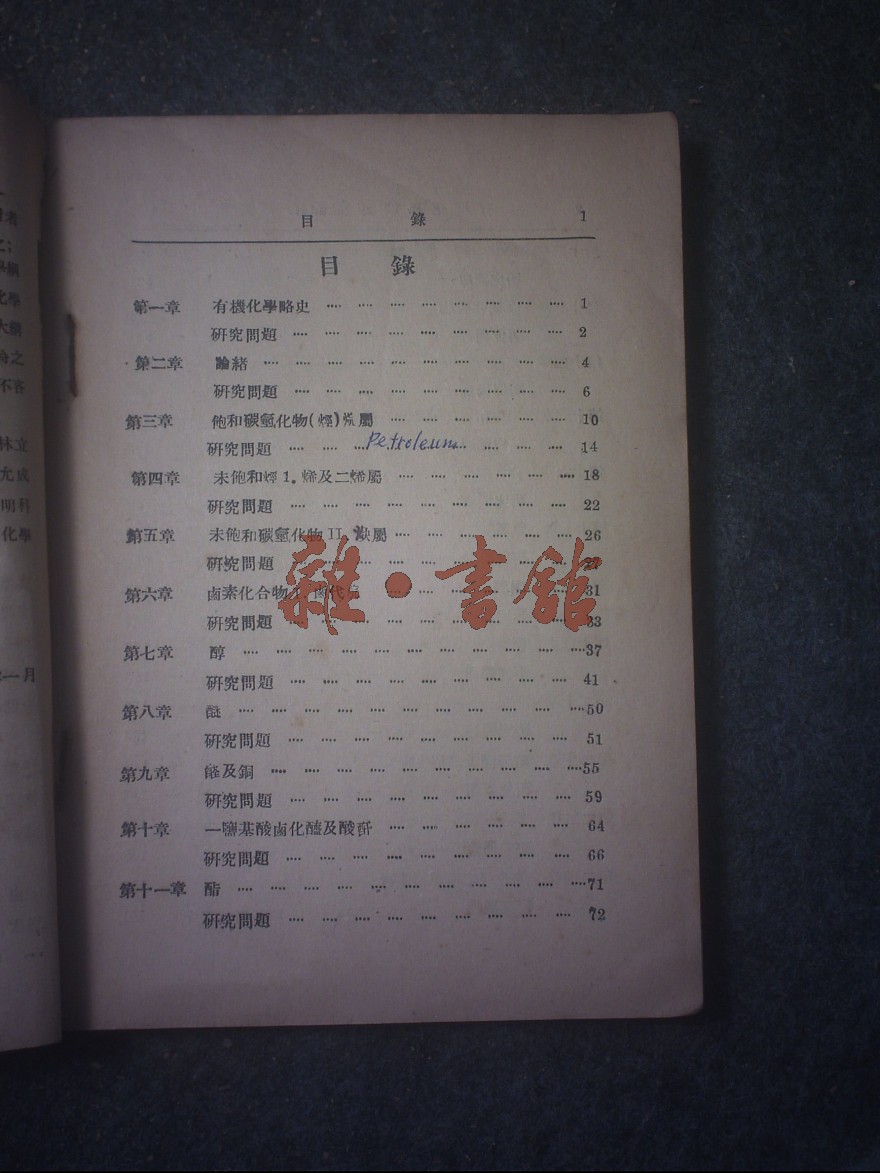 目 錄 1
目 錄
第一章 有機化學略史 ···· 1
研究問題 ···· 2
第二章 論緒 ···· 4
研究問題 ···· 6
第三章 飽和碳氫化物(烴)烷屬 ···· 10
Petroleum
研究問題 ···· 14
第四章 未飽和烴 1. 烯及二烯屬 ···· 18
研究問題 ···· 22
第五章 未飽和碳氫化物 II. 炔屬 ···· 26
研究問題 ···· 27
第六章 鹵素化合物 I. 鹵代 ···· 31
研究問題 ···· 33
第七章 醇 ···· 37
研究問題 ···· 41
第八章 醚 ···· 50
研究問題 ···· 51
第九章 醛及銅 ···· 55
研究問題 ···· 59
第十章 一鹽基酸鹵化醯及酸酐 ···· 64
研究問題 ···· 66
第十一章 酯 ···· 71
研究問題 ···· 72
雜·書館
者
之;
化學
大綱
之
不吝
林立
尤成
明科
化學
一月